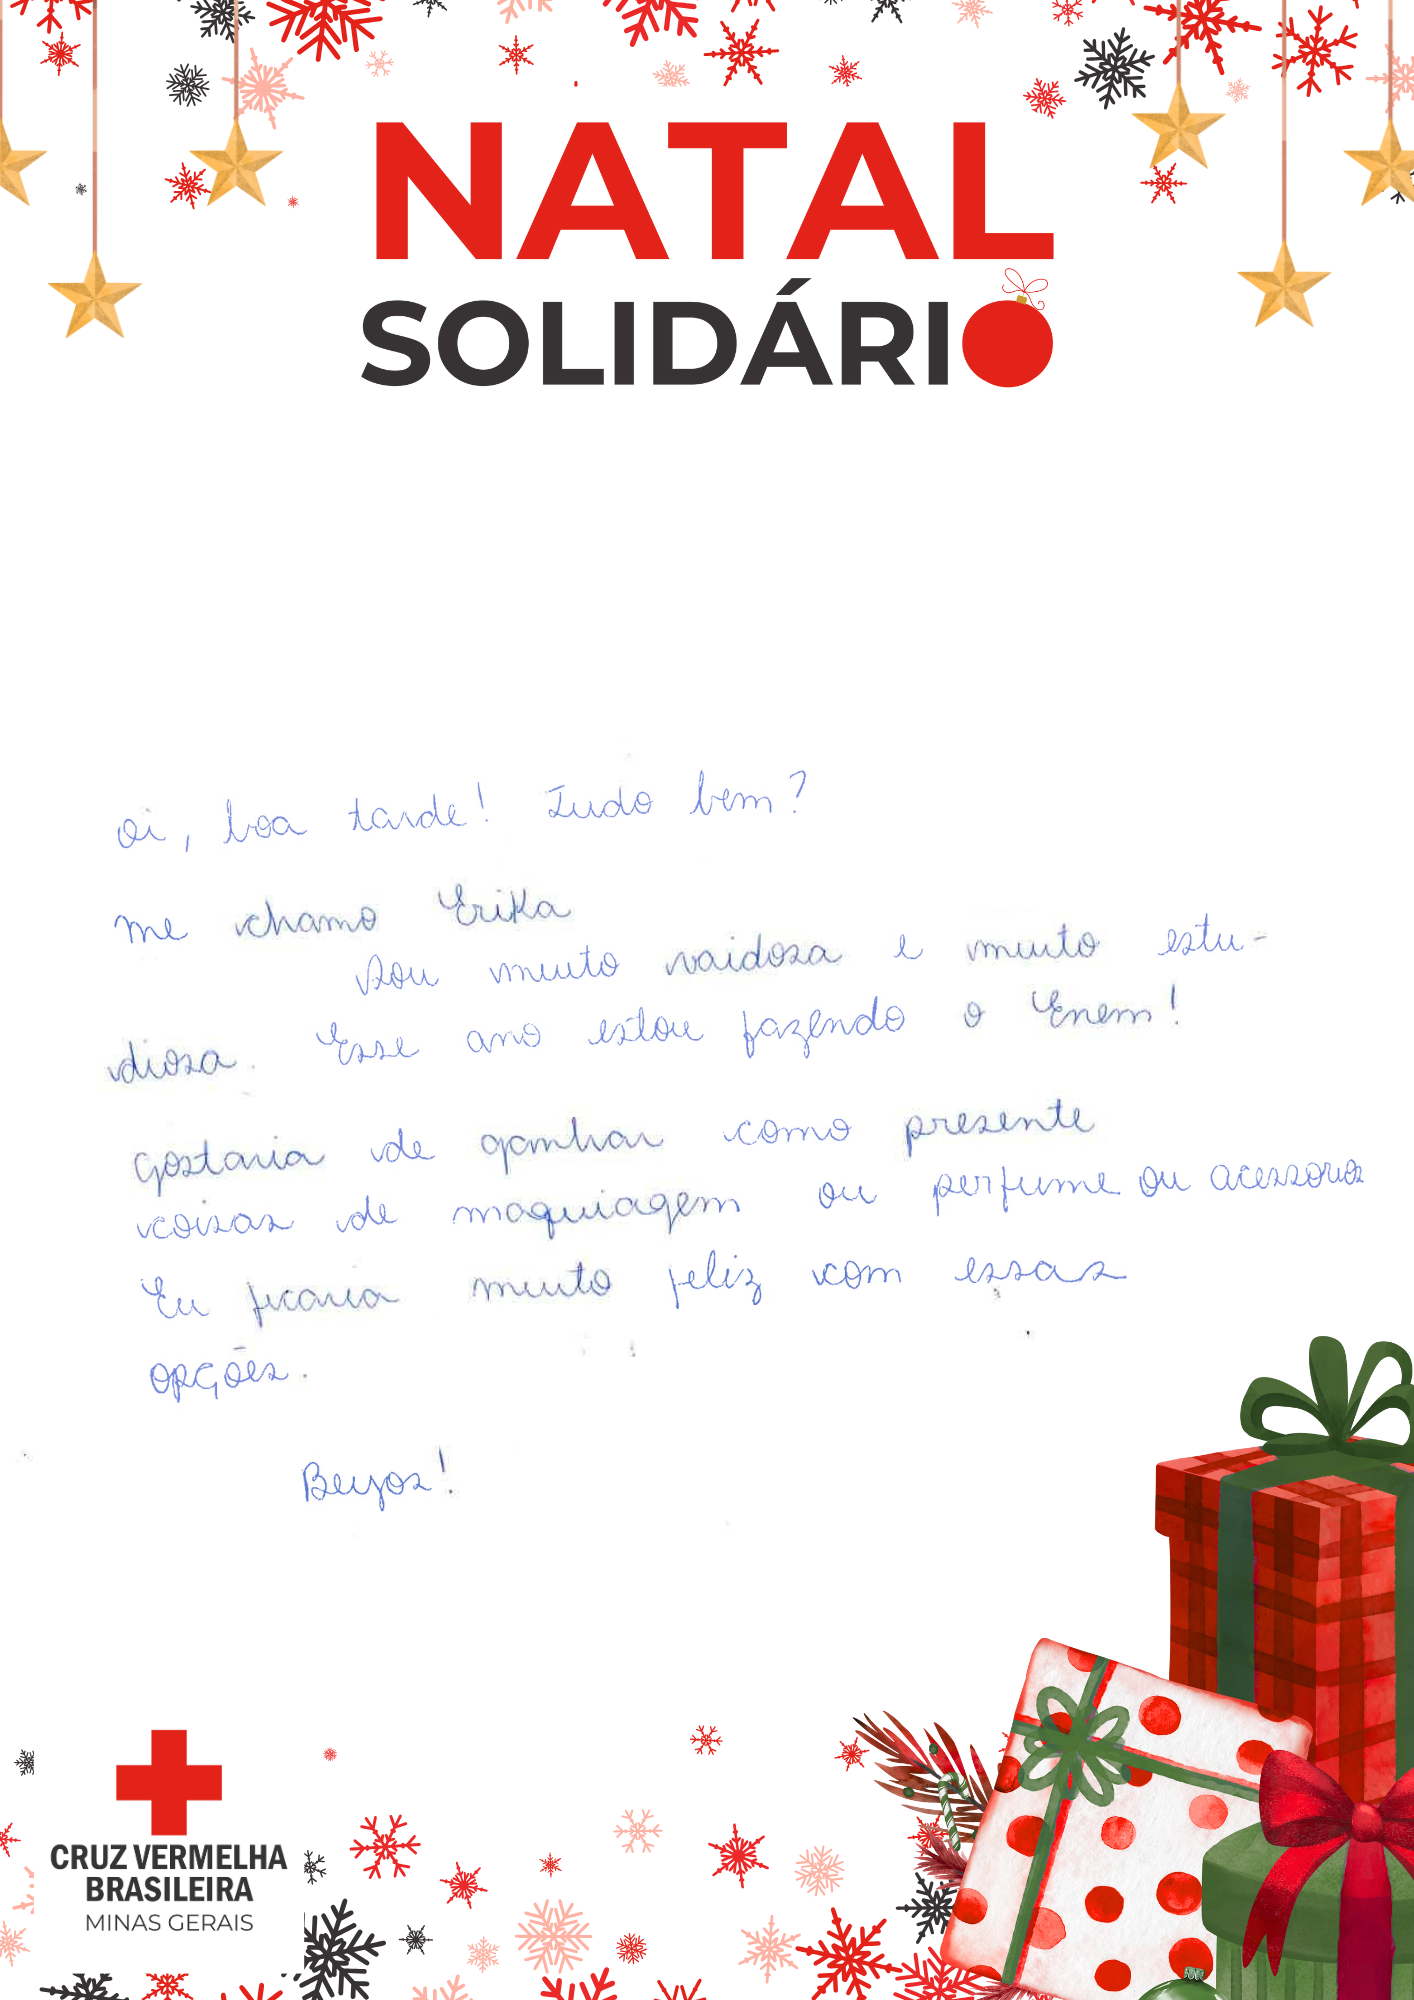 NATAL
SOLIDÁRIO
oi, boa tarde! Tudo bem?
me chamo Erika
Sou muito vaidosa e muito estu-
diosa. Esse ano estou fazendo o Enem!
gostaria de ganhar como presente
coisas de maquiagem ou perfume ou acessorios
Eu ficaria muito feliz com essas
opções.
Beijos!
CRUZ VERMELHA
BRASILEIRA
MINAS GERAIS